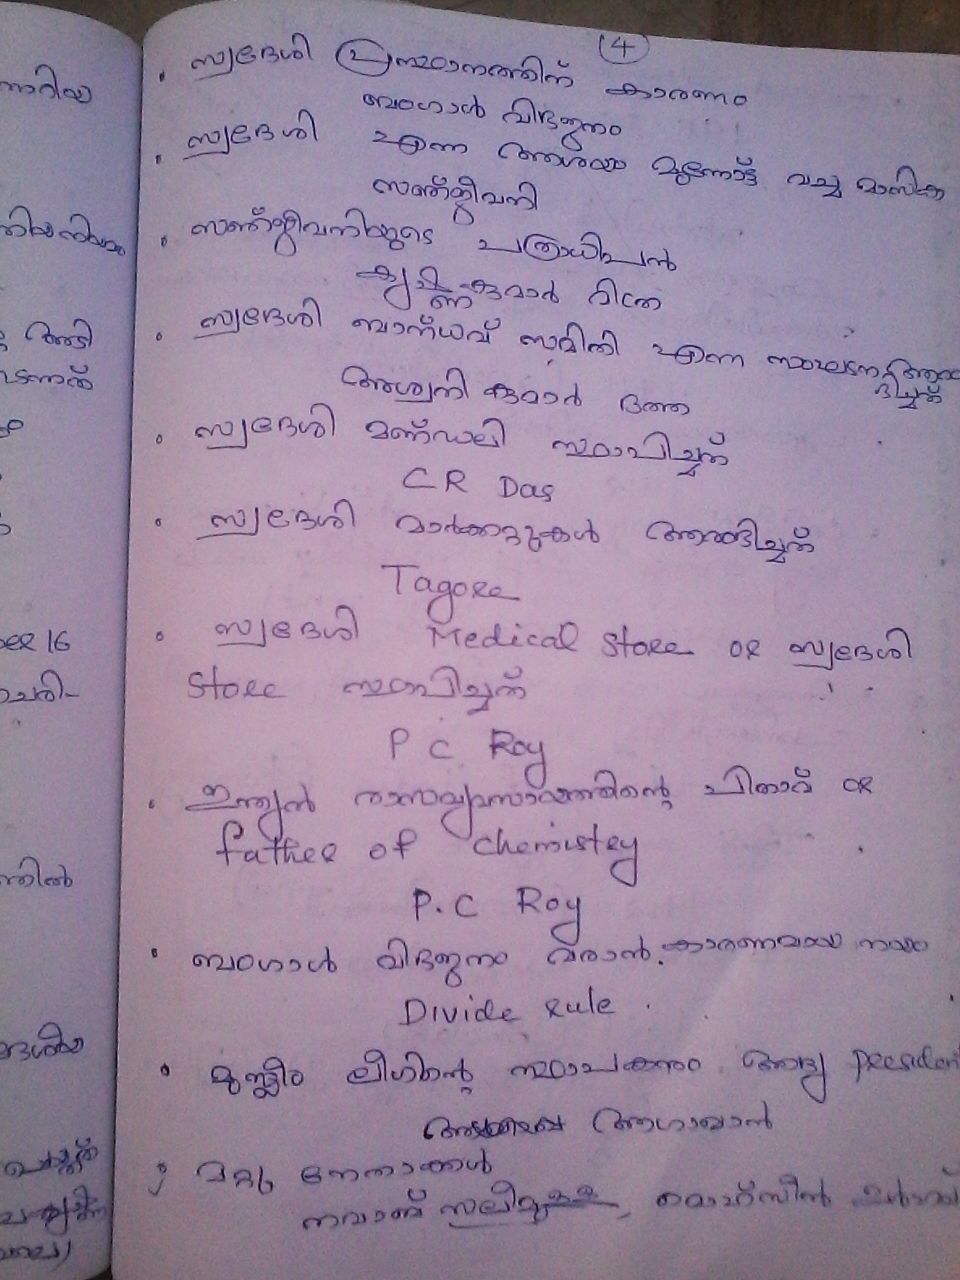 4
• സ്വദേശി പ്രസ്ഥാനത്തിന് കാരണം
ബംഗാൾ വിഭജനം
• സ്വദേശി എന്ന ആശയം മുന്നോട്ട് വച്ച മാസിക
സഞ്ജീവനി
• സഞ്ജീവനിയുടെ പത്രാധിപൻ
കൃഷ്ണകുമാർ മിത്ര
• സ്വദേശി ബാന്ധവ് സമിതി എന്ന സംഘടന
അശ്വനി കുമാർ ദത്ത
• സ്വദേശി മണ്ഡലി സ്ഥാപിച്ചത്
CR Das
• സ്വദേശി മാർക്കറ്റുകൾ ആരംഭിച്ചത്
Tagore
• സ്വദേശി Medical Store OR സ്വദേശി
Store സ്ഥാപിച്ചത്
P C Roy
• ഇന്ത്യൻ രാസവ്യവസായത്തിന്റെ പിതാവ് OR
father of chemistry
P.C Roy
• ബംഗാൾ വിഭജനം വരാൻ കാരണമായ നയം
Divide rule.
• മുസ്ലീം ലീഗിന്റെ സ്ഥാപകനും ആദ്യ president
ആഗാഖാൻ
; മറ്റു നേതാക്കൾ
നവാബ് സലീമുള്ള, മൊഹ്സിൻ
അടി
ber 16
ത്തിൽ